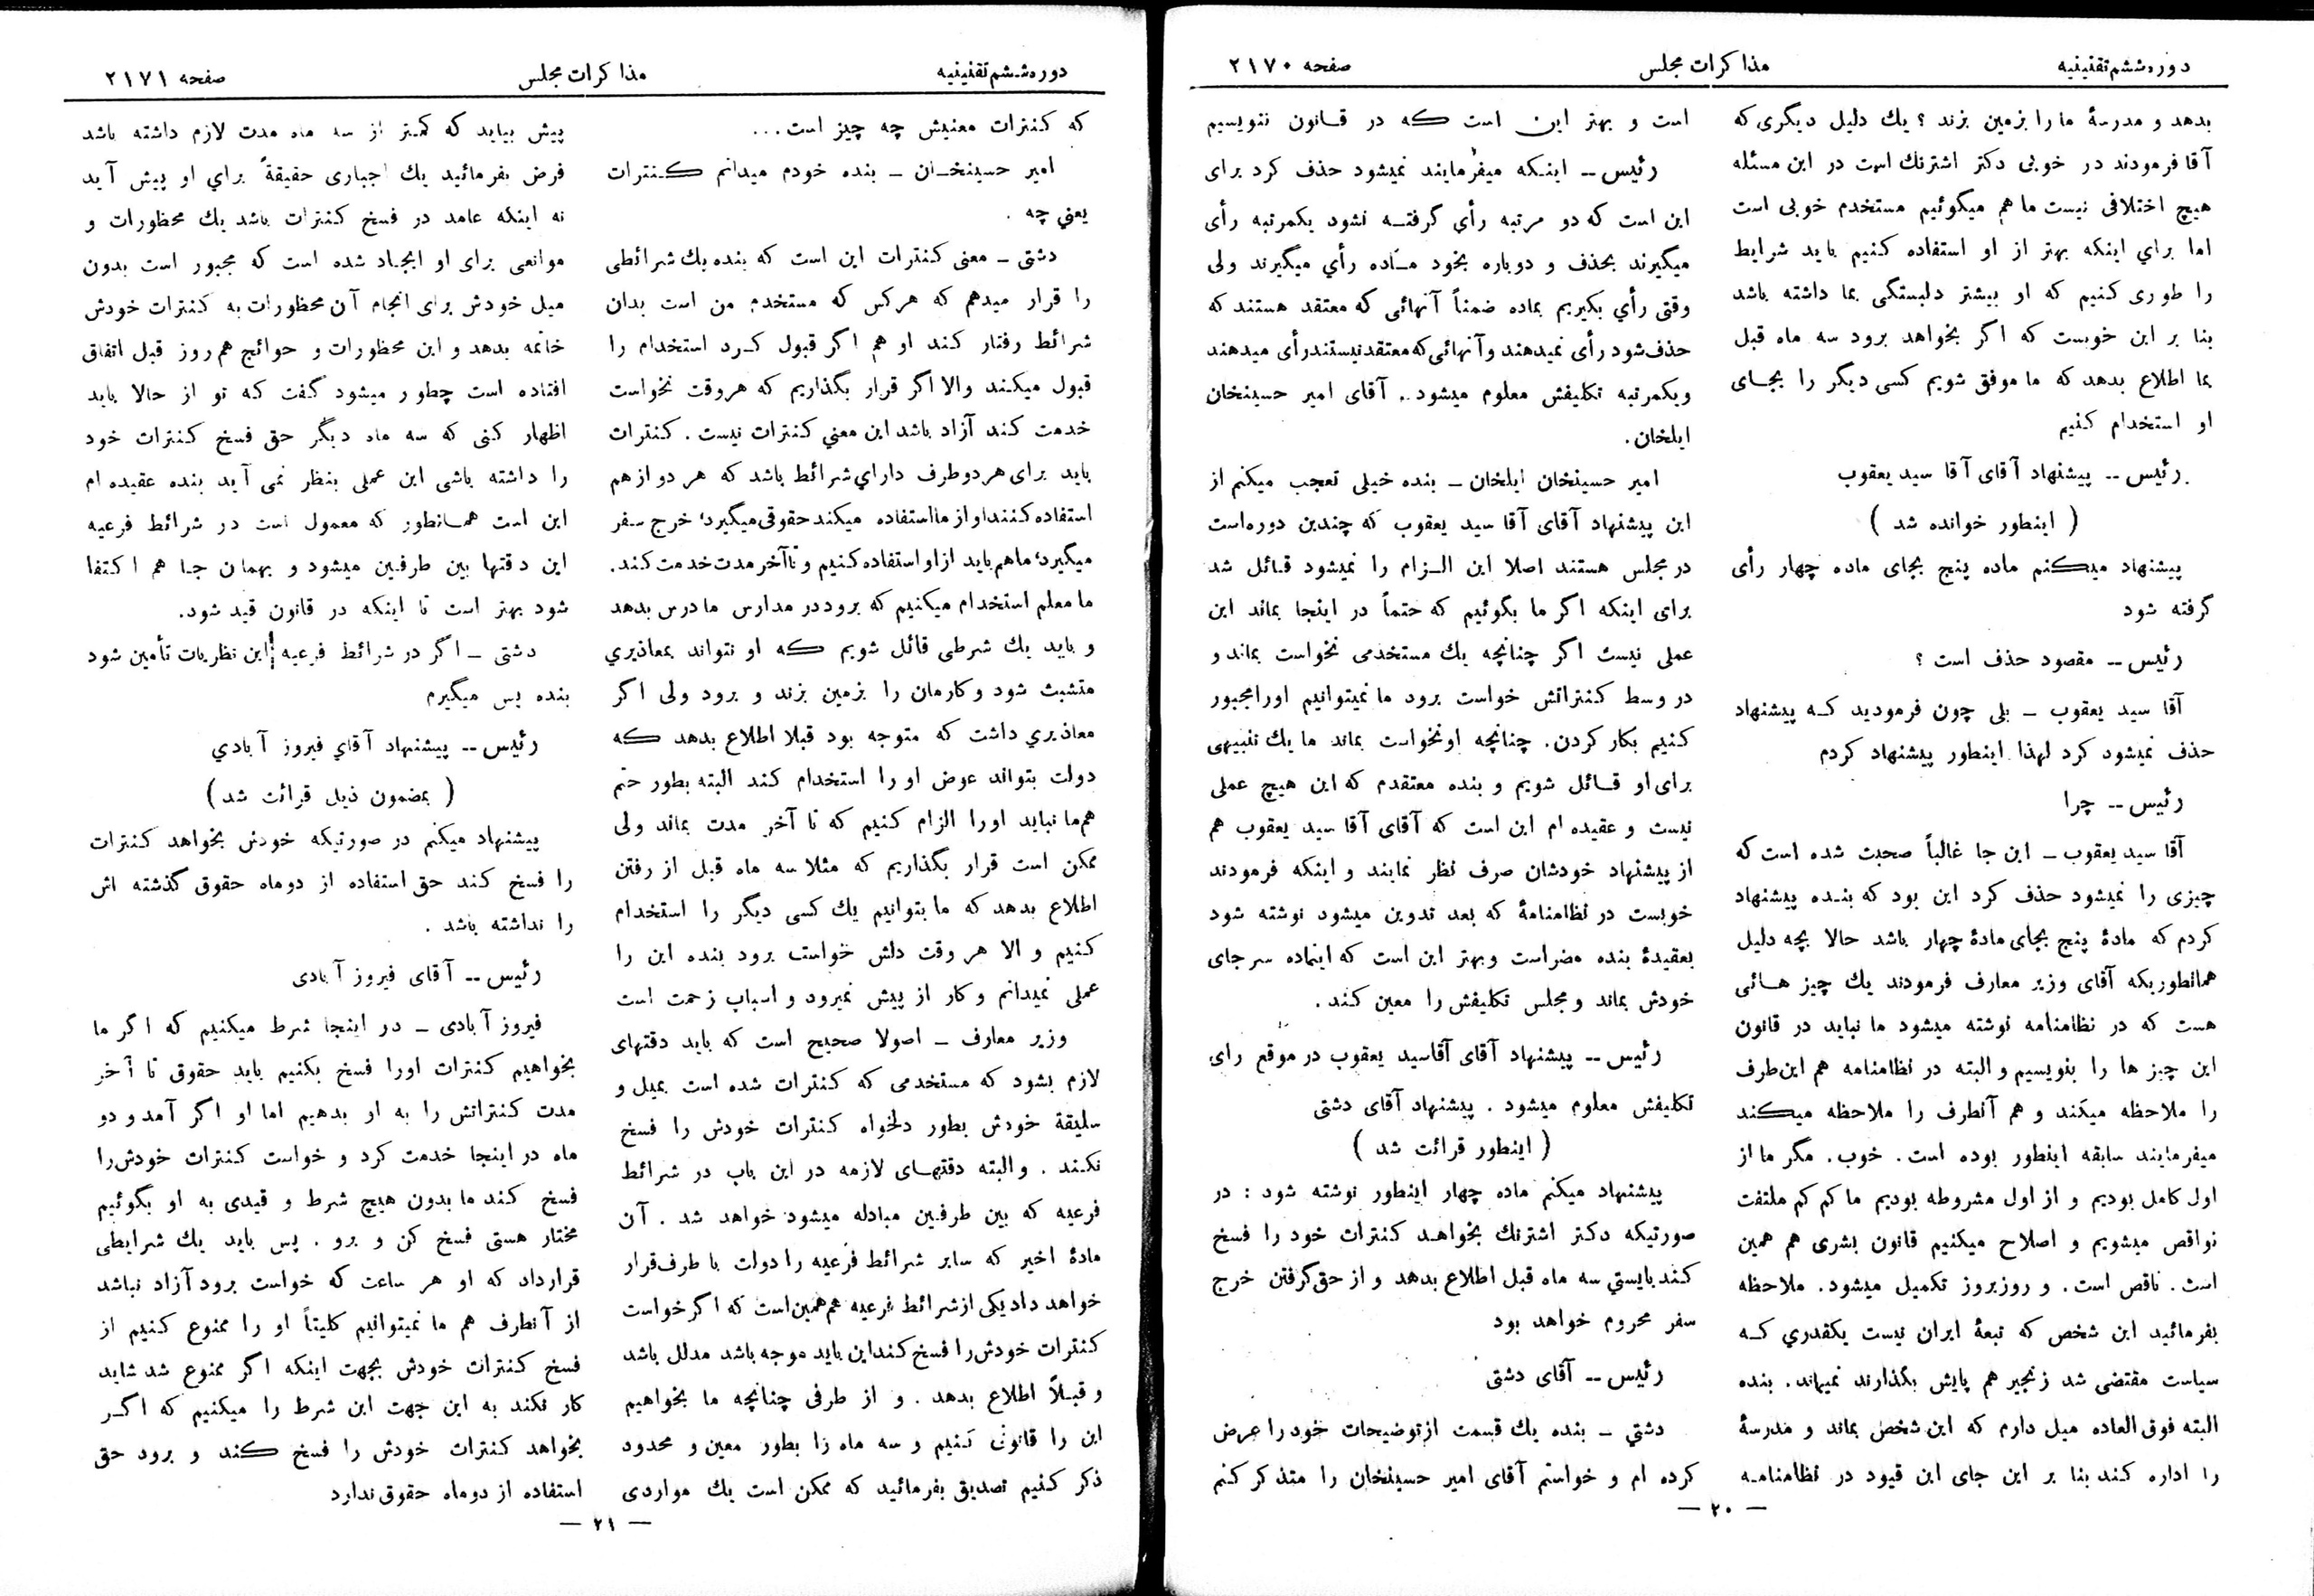 دوره ششم تقنینیه
مذاکرات مجلس
صفحه ۲۱۷۰
بدهد و مدرسهٔ ما را بزمین بزند ؟ یك دلیل دیگری كه
آقا فرمودند در خوبی دكتر اشترنك است در این مسئله
هیچ اختلافی نیست ما هم میگوئیم مستخدم خوبی است
اما برای اینكه بهتر از او استفاده كنیم باید شرایط
را طوری كنیم كه او بیشتر دلبستگی بما داشته باشد
بنا بر این خوبست كه اگر بخواهد برود سه ماه قبل
بما اطلاع بدهد كه ما موفق شویم كسی دیگر را بجای
او استخدام كنیم
رئیس -- پیشنهاد آقای آقا سید یعقوب
( اینطور خوانده شد )
پیشنهاد میكنم ماده پنج بجای ماده چهار رأی
گرفته شود
رئیس -- مقصود حذف است ؟
آقا سید یعقوب ـ بلی چون فرمودید كه پیشنهاد
حذف نمیشود كرد لهذا اینطور پیشنهاد كردم
رئیس -- چرا
آقا سید یعقوب ـ این جا غالباً صحبت شده است كه
چیزی را نمیشود حذف كرد این بود كه بنده پیشنهاد
كردم كه مادهٔ پنج بجای مادهٔ چهار باشد حالا بچه دلیل
همانطوریكه آقای وزیر معارف فرمودند یك چیز هائی
هست كه در نظامنامه نوشته میشود ما نباید در قانون
این چیز ها را بنویسیم و البته در نظامنامه هم این طرف
را ملاحظه میكند و هم آنطرف را ملاحظه میكند
میفرمایند سابقه اینطور بوده است . خوب . مگر ما از
اول كامل بودیم و از اول مشروطه بودیم ما كم كم ملتفت
نواقص میشویم و اصلاح میكنیم قانون بشری هم همین
است . ناقص است . و روزبروز تكمیل میشود . ملاحظه
بفرمائید این شخص كه تبعهٔ ایران نیست یكقدری كه
سیاست مقتضی شد زنجیر هم پایش بگذارند نمیماند . بنده
البته فوق العاده میل دارم كه این شخص بماند و مدرسهٔ
را اداره كند بنا بر این جای این قیود در نظامنامه
است و بهتر این است كه در قانون ننویسیم
رئیس -- اینكه میفرمایند نمیشود حذف كرد برای
این است كه دو مرتبه رأی گرفته نشود یكمرتبه رأی
میگیرند بحذف و دوباره بخود ماده رأی میگیرند ولی
وقتی رأی بگیریم بماده ضمناً آنهائی كه معتقد هستند كه
حذف شود رأی نمیدهند و آنهائی كه معتقد نیستند رأی میدهند
ویكمرتبه تكلیفش معلوم میشود . آقای امیر حسینخان
ایلخان .
امیر حسینخان ایلخان ـ بنده خیلی تعجب میكنم از
این پیشنهاد آقای آقا سید یعقوب كه چندین دوره است
در مجلس هستند اصلا این الزام را نمیشود قائل شد
برای اینكه اگر ما بگوئیم كه حتماً در اینجا بماند این
عملی نیست اگر چنانچه یك مستخدمی نخواست بماند و
در وسط كنتراتش خواست برود ما نمیتوانیم او را مجبور
كنیم بكار كردن . چنانچه او نخواست بماند ما یك تنبیهی
برای او قائل شویم و بنده معتقدم كه این هیچ عملی
نیست و عقیده ام این است كه آقای آقا سید یعقوب هم
از پیشنهاد خودشان صرف نظر نمایند و اینكه فرمودند
خوبست در نظامنامهٔ كه بعد تدوین میشود نوشته شود
بعقیدهٔ بنده مضر است و بهتر این است كه اینماده سر جای
خودش بماند و مجلس تكلیفش را معین كند .
رئیس -- پیشنهاد آقای آقاسید یعقوب در موقع رای
تكلیفش معلوم میشود . پیشنهاد آقای دشتی
( اینطور قرائت شد )
پیشنهاد میكنم ماده چهار اینطور نوشته شود : در
صورتیكه دكتر اشترنك بخواهد كنترات خود را فسخ
كند بایستی سه ماه قبل اطلاع بدهد و از حق گرفتن خرج
سفر محروم خواهد بود
رئیس -- آقای دشتی
دشتی ـ بنده یك قسمت از توضیحات خود را عرض
كرده ام و خواستم آقای امیر حسینخان را متذكر كنم
— ۲۰ —
دوره ششم تقنینیه
مذاکرات مجلس
صفحه ۲۱۷۱
كه كنترات معنیش چه چیز است...
امیر حسینخان ـ بنده خودم میدانم كنترات
یعنی چه .
دشتی ـ معنی كنترات این است كه بنده یك شرائطی
را قرار میدهم كه هركس كه مستخدم من است بدان
شرائط رفتار كند او هم اگر قبول كرد استخدام را
قبول میكند والا اگر قرار بگذاریم كه هروقت نخواست
خدمت كند آزاد باشد این معنی كنترات نیست . كنترات
باید برای هر دو طرف دارای شرائط باشد كه هر دو از هم
استفاده كنند او از ما استفاده میكند حقوقی میگیرد، خرج سفر
میگیرد، ما هم باید از او استفاده كنیم و تا آخر مدت خدمت كند .
ما معلم استخدام میكنیم كه برود در مدارس ما درس بدهد
و باید یك شرطی قائل شویم كه او نتواند بمعاذیری
متشبث شود و كارمان را بزمین بزند و برود ولی اگر
معاذیری داشت كه متوجه بود قبلا اطلاع بدهد كه
دولت بتواند عوض او را استخدام كند البته بطور حتم
هم ما نباید او را الزام كنیم كه تا آخر مدت بماند ولی
ممكن است قرار بگذاریم كه مثلا سه ماه قبل از رفتن
اطلاع بدهد كه ما بتوانیم یك كسی دیگر را استخدام
كنیم و الا هر وقت دلش خواست برود بنده این را
عملی نمیدانم و كار از پیش نمیرود و اسباب زحمت است
وزیر معارف ـ اصولا صحیح است كه باید دقتهای
لازم بشود كه مستخدمی كه كنترات شده است بمیل و
سلیقهٔ خودش بطور دلخواه كنترات خودش را فسخ
نكند . و البته دقتهای لازمه در این باب در شرائط
فرعیه كه بین طرفین مبادله میشود خواهد شد . آن
مادهٔ اخیر كه سایر شرائط فرعیه را دولت با طرف قرار
خواهد داد یكی از شرائط فرعیه هم همین است كه اگر خواست
كنترات خودش را فسخ كند این باید موجه باشد مدلل باشد
و قبلاً اطلاع بدهد . و از طرفی چنانچه ما بخواهیم
این را قانونی كنیم و سه ماه را بطور معین و محدود
ذكر كنیم تصدیق بفرمائید كه ممكن است یك مواردی
پیش بیاید كه كمتر از سه ماه مدت لازم داشته باشد
فرض بفرمائید یك اجباری حقیقهً برای او پیش آید
نه اینكه عامد در فسخ كنترات باشد یك محظورات و
موانعی برای او ایجاد شده است كه مجبور است بدون
میل خودش برای انجام آن محظورات به كنترات خودش
خاتمه بدهد و این محظورات و حوائج هم روز قبل اتفاق
افتاده است چطور میشود گفت كه تو از حالا باید
اظهار كنی كه سه ماه دیگر حق فسخ كنترات خود
را داشته باشی این عملی بنظر نمی آید بنده عقیده ام
این است همانطور كه معمول است در شرائط فرعیه
این دقتها بین طرفین میشود و بهمان جا هم اكتفا
شود بهتر است تا اینكه در قانون قید شود.
دشتی ـ اگر در شرائط فرعیه این نظریات تأمین شود
بنده پس میگیرم
رئیس -- پیشنهاد آقای فیروز آبادی
( بمضمون ذیل قرائت شد )
پیشنهاد میكنم در صورتیكه خودش بخواهد كنترات
را فسخ كند حق استفاده از دوماه حقوق گذشته اش
را نداشته باشد .
رئیس -- آقای فیروز آبادی
فیروز آبادی ـ در اینجا شرط میكنیم كه اگر ما
بخواهیم كنترات او را فسخ بكنیم باید حقوق تا آخر
مدت كنتراتش را به او بدهیم اما او اگر آمد و دو
ماه در اینجا خدمت كرد و خواست كنترات خودش را
فسخ كند ما بدون هیچ شرط و قیدی به او بگوئیم
مختار هستی فسخ كن و برو . پس باید یك شرایطی
قرارداد كه او هر ساعت كه خواست برود آزاد نباشد
از آنطرف هم ما نمیتوانیم كلیتاً او را ممنوع كنیم از
فسخ كنترات خودش بجهت اینكه اگر ممنوع شد شاید
كار نكند به این جهت این شرط را میكنیم كه اگر
بخواهد كنترات خودش را فسخ كند و برود حق
استفاده از دوماه حقوق ندارد
— ۲۱ —